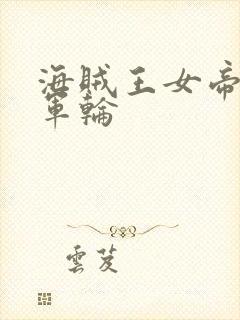 海贼王女帝
軍輪
雲芨